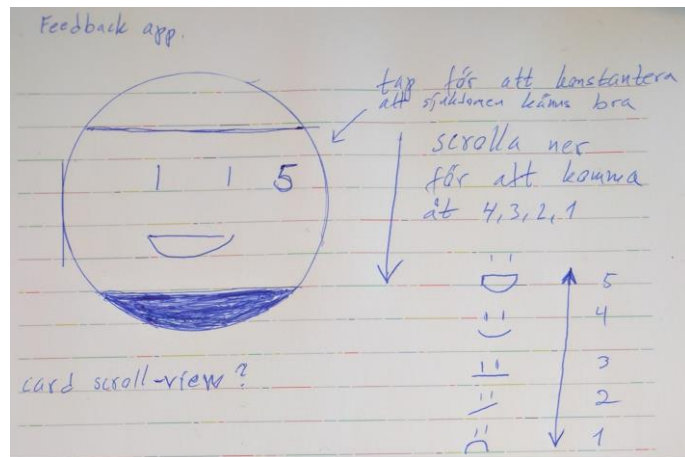 Feedback app.
tap för att konstantera
att sjukdomen känns bra
scrolla ner
för att komma
åt 4,3,2,1
5
5
4
3
2
1
card scroll-view?